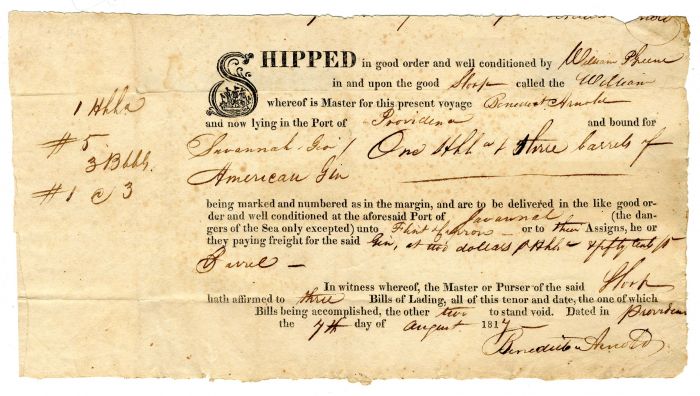 SHIPPED in good order and well conditioned by William P Greene
in and upon the good Sloop called the William
whereof is Master for this present voyage Benedict Arnold
and now lying in the Port of Providence and bound for
Savannah One Hhd & three barrels of
American Gin
1 Hhd
# 5
3 Bbls
# 1 @ 3
being marked and numbered as in the margin, and are to be delivered in the like good or-
der and well conditioned at the aforesaid Port of Savannah (the dan-
gers of the Sea only excepted) unto or to their Assigns, he or
they paying freight for the said Gin, at two dollars p Hhd & fifty cents p
Barrel —
In witness whereof, the Master or Purser of the said Sloop
hath affirmed to three Bills of Lading, all of this tenor and date, the one of which
Bills being accomplished, the other two to stand void. Dated in Providence
the 7th day of August 1817
Benedict Arnold